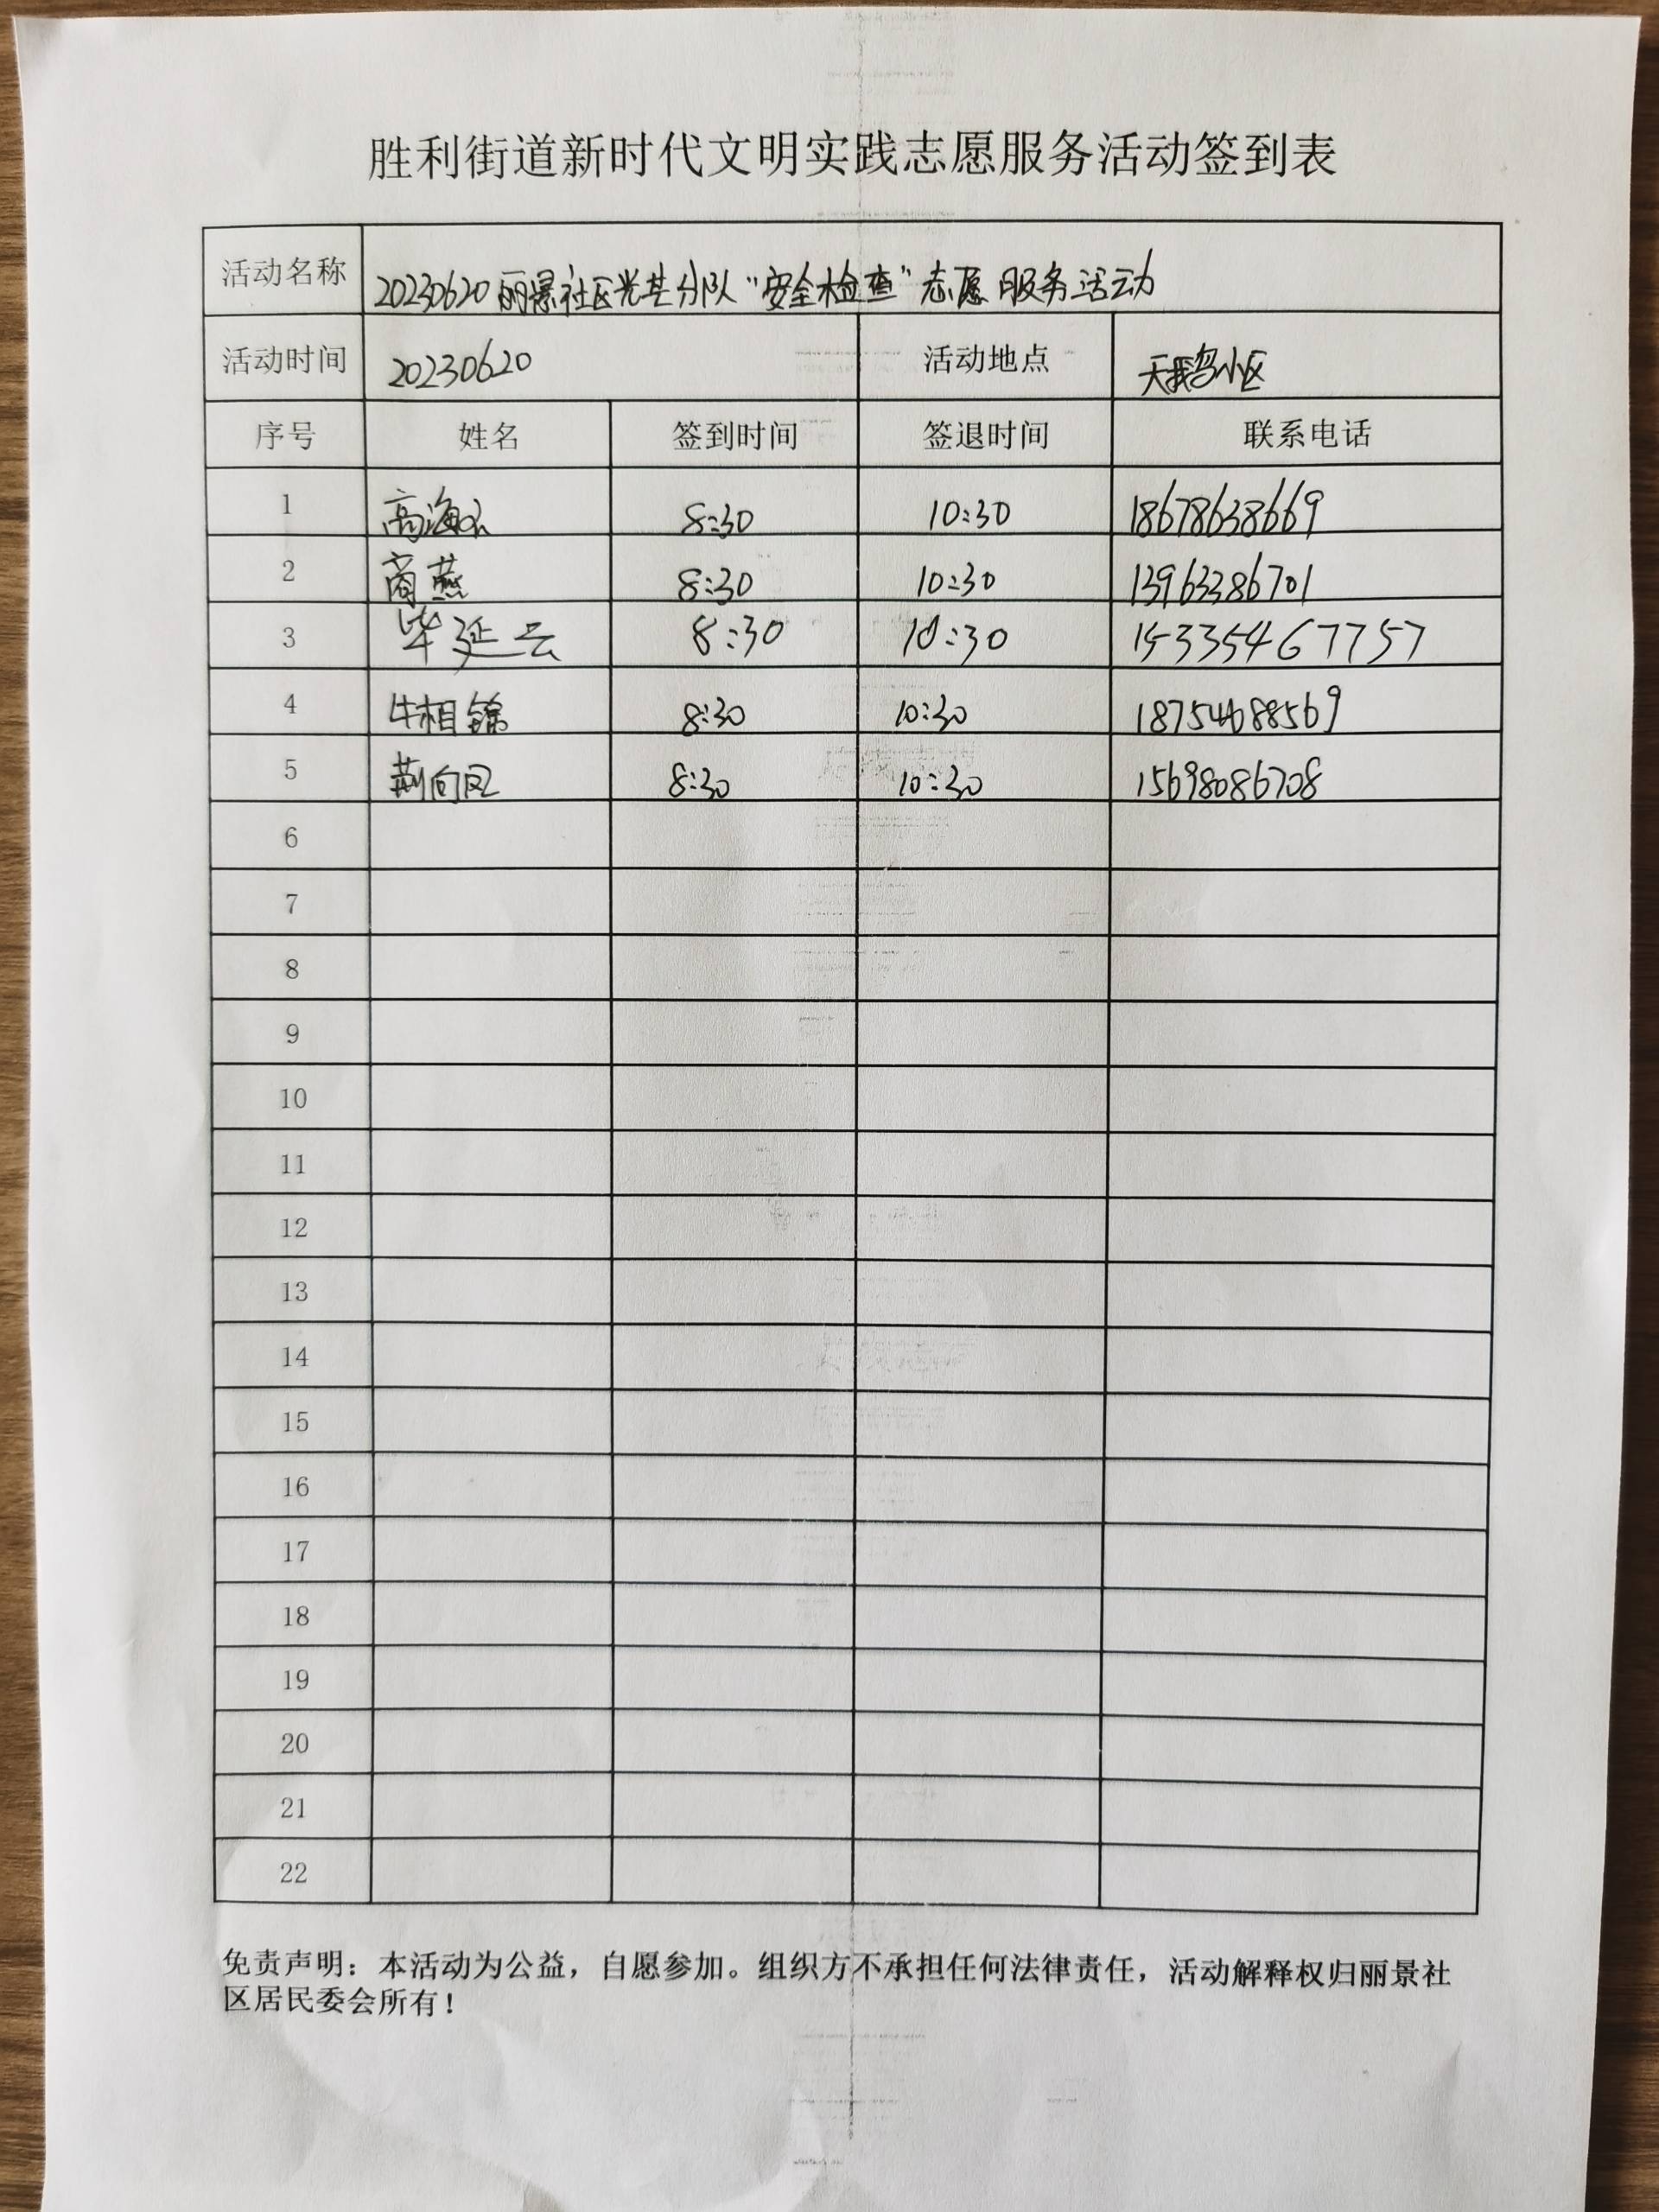 胜利街道新时代文明实践志愿服务活动签到表
活动名称 20230620丽景社区光芒分队“安全检查”志愿服务活动
活动时间 20230620 活动地点 天鹅小区
序号 姓名 签到时间 签退时间 联系电话
1 高海 8:30 10:30 18678638669
2 商燕 8:30 10:30 13963386701
3 毕延云 8:30 10:30 15335467757
4 牛相锦 8:30 10:30 18754688569
5 荆向凤 8:30 10:30 15698086708
6
7
8
9
10
11
12
13
14
15
16
17
18
19
20
21
22
免责声明：本活动为公益，自愿参加。组织方不承担任何法律责任，活动解释权归丽景社
区居民委会所有！